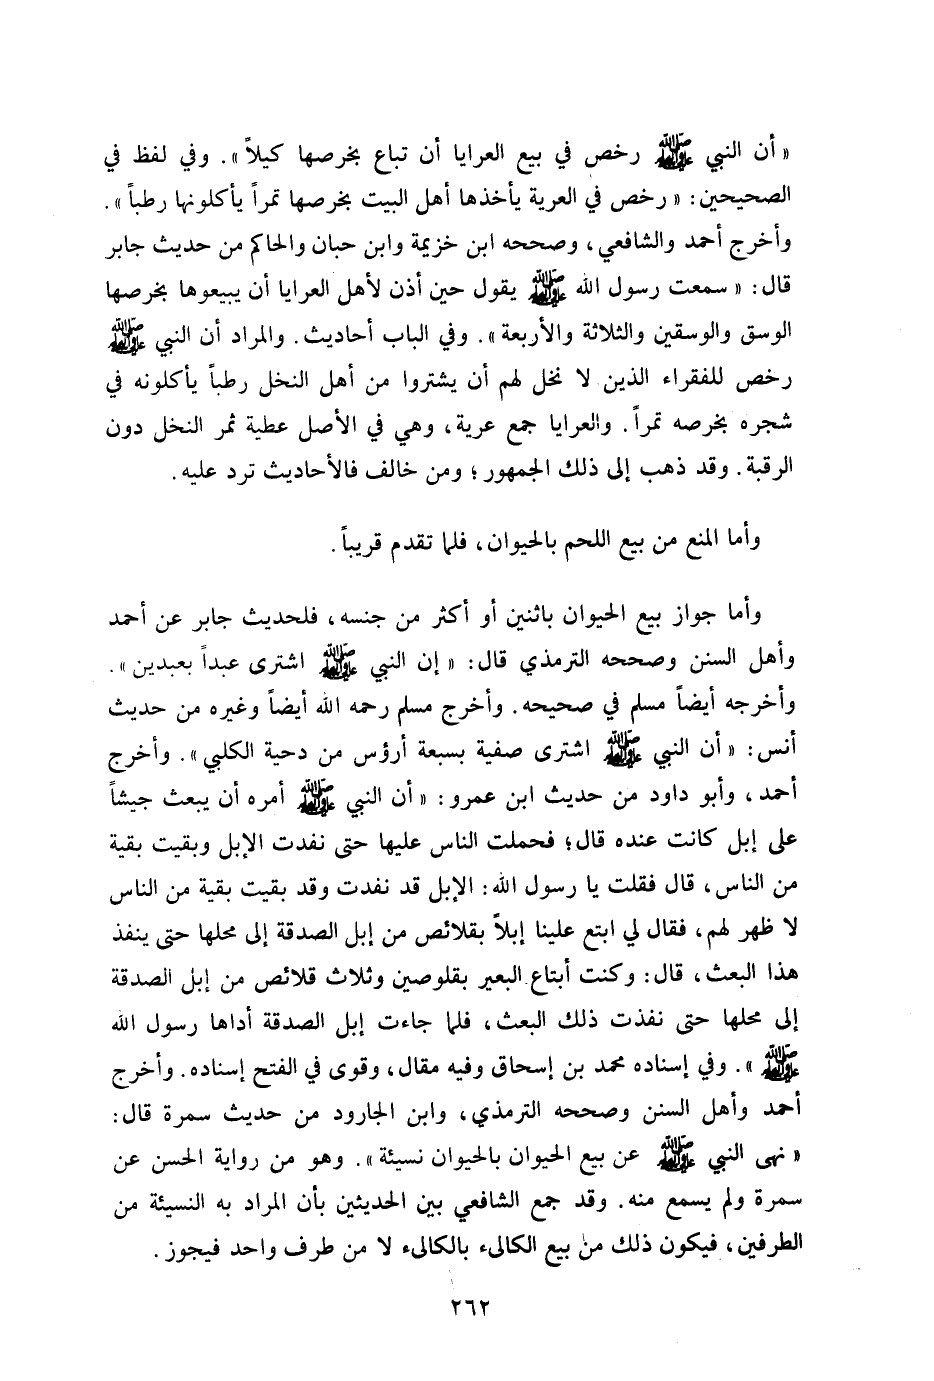 « أن النبي ﷺ رخص في بيع العرايا أن تباع بخرصها كيلاً » . وفي لفظ في
الصحيحين : « رخص في العرية يأخذها أهل البيت بخرصها تمراً يأكلونها رطباً » .
وأخرج أحمد والشافعي ، وصححه ابن خزيمة وابن حبان والحاكم من حديث جابر
قال : « سمعت رسول الله ﷺ يقول حين أذن لأهل العرايا أن يبيعوها بخرصها
الوسق والوسقين والثلاثة والأربعة » . وفي الباب أحاديث . والمراد أن النبي ﷺ
رخص للفقراء الذين لا نخل لهم أن يشتروا من أهل النخل رطباً يأكلونه في
شجره بخرصه تمراً . والعرايا جمع عرية ، وهي في الأصل عطية ثمر النخل دون
الرقبة . وقد ذهب إلى ذلك الجمهور ؛ ومن خالف فالأحاديث ترد عليه .
وأما المنع من بيع اللحم بالحيوان ، فلما تقدم قريباً .
وأما جواز بيع الحيوان باثنين أو أكثر من جنسه ، فلحديث جابر عن أحمد
وأهل السنن وصححه الترمذي قال : « إن النبي ﷺ اشترى عبداً بعبدين » .
وأخرجه أيضاً مسلم في صحيحه . وأخرج مسلم رحمه الله أيضاً وغيره من حديث
أنس : « أن النبي ﷺ اشترى صفية بسبعة أرؤس من دحية الكلبي » . وأخرج
أحمد ، وأبو داود من حديث ابن عمرو : « أن النبي ﷺ أمره أن يبعث جيشاً
على إبل كانت عنده قال ؛ فحملت الناس عليها حتى نفدت الإبل وبقيت بقية
من الناس ، قال فقلت يا رسول الله : الإبل قد نفدت وقد بقيت بقية من الناس
لا ظهر لهم ، فقال لي ابتع علينا إبلاً بقلائص من إبل الصدقة إلى محلها حتى ينفذ
هذا البعث ، قال : وكنت أبتاع البعير بقلوصين وثلاث قلائص من إبل الصدقة
إلى محلها حتى نفذت ذلك البعث ، فلما جاءت إبل الصدقة أداها رسول الله
ﷺ » . وفي إسناده محمد بن إسحاق وفيه مقال ، وقوى في الفتح إسناده . وأخرج
أحمد وأهل السنن وصححه الترمذي ، وابن الجارود من حديث سمرة قال :
« نهى النبي ﷺ عن بيع الحيوان بالحيوان نسيئة » . وهو من رواية الحسن عن
سمرة ولم يسمع منه . وقد جمع الشافعي بين الحديثين بأن المراد به النسيئة من
الطرفين ، فيكون ذلك من بيع الكالىء بالكالىء لا من طرف واحد فيجوز .
٢٦٢